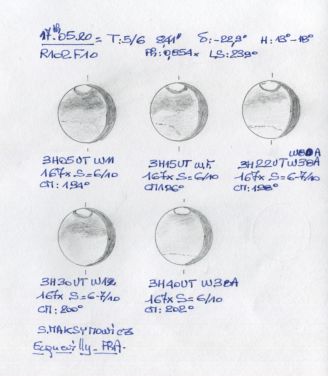 17.05.20 = T:5/6 8,41" δ:-22,9° H:18°-18°
R102.F10 PH:0,854x LS:239°
3H05UT W11
167x S=6/10
CM:194°
3H15UT
167x S=6/10
CM196°
W80A
3H22UT W38A
167x S=6-7/10
CM:198°
3H30UT W12
167x S=6-7/10
CM:200°
3H40UT W38A
167x S=6/10
CM:202°
S.MAKSYMOWICZ
Ecquevilly-FRA.